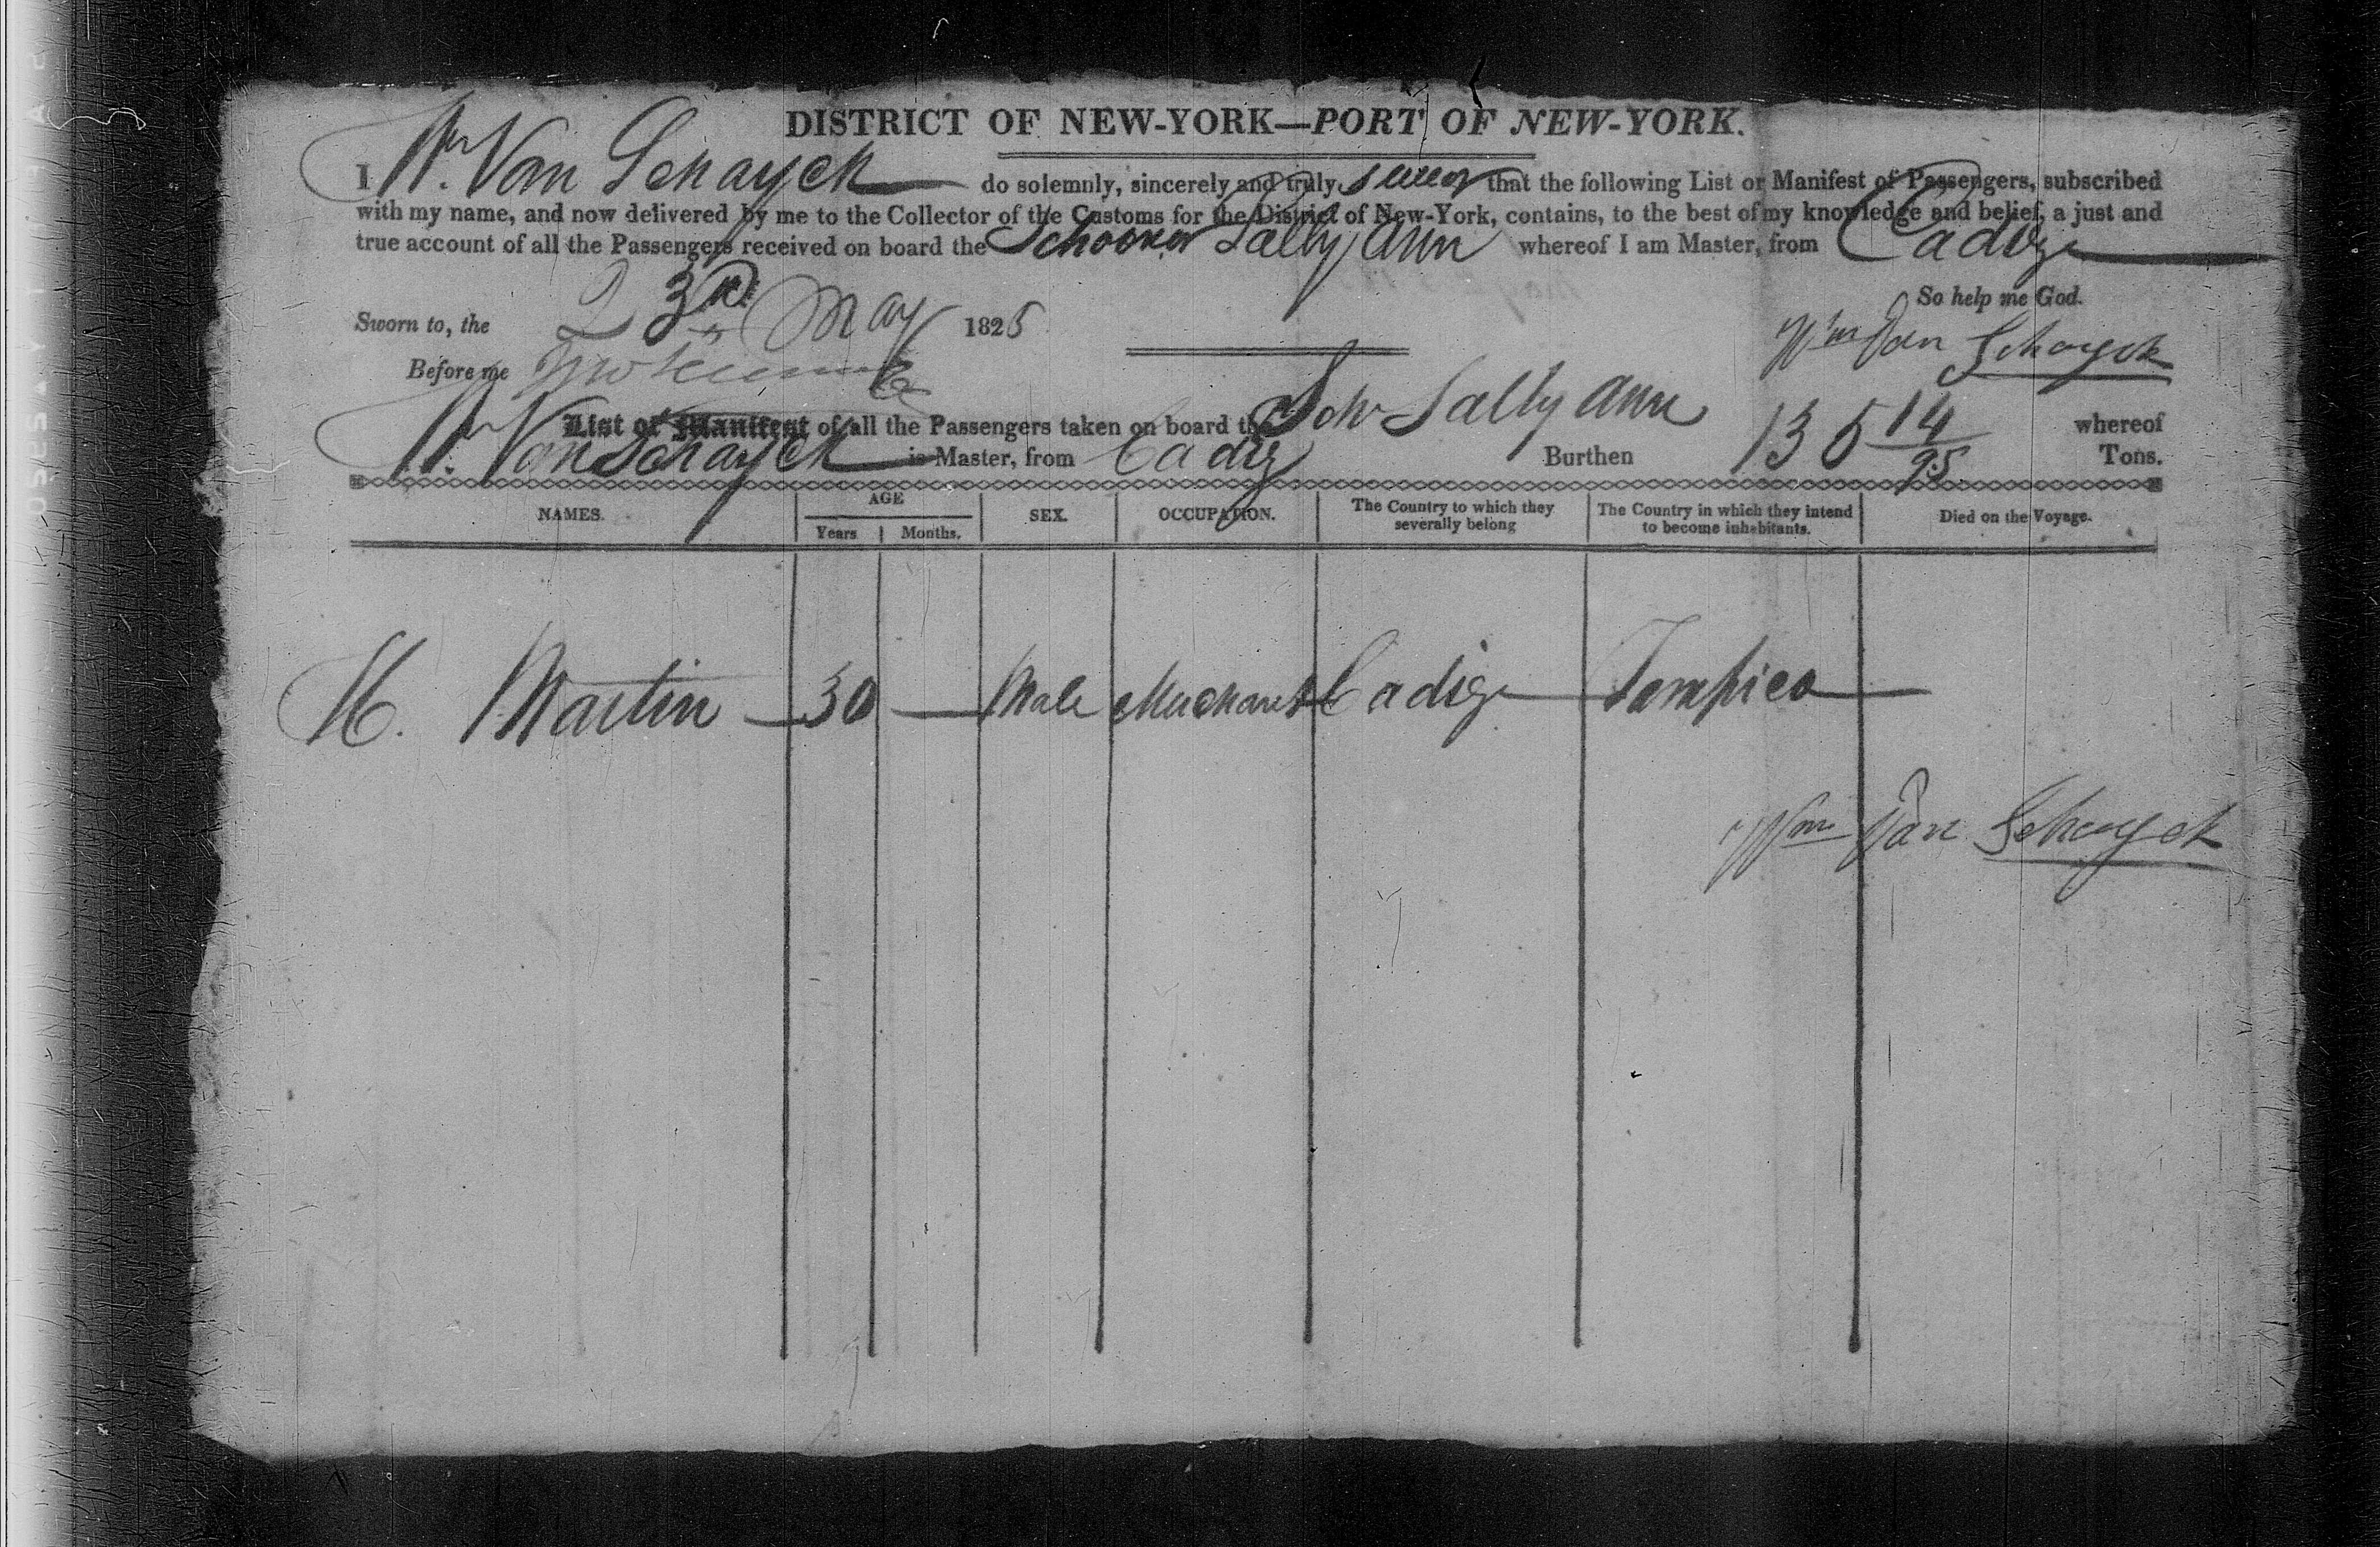 DISTRICT OF NEW-YORK—PORT OF NEW-YORK.
I Wm Van Schayck do solemnly, sincerely and truly swear that the following List or Manifest of Passengers, subscribed
with my name, and now delivered by me to the Collector of the Customs for the District of New-York, contains, to the best of my knowledge and belief, a just and
true account of all the Passengers received on board the Schooner Sally Ann whereof I am Master, from Cadiz
So help me God.
Sworn to, the 23rd May 1825
Wm Van Schayck
Before me
List or Manifest of all the Passengers taken on board the Schr Sally Ann whereof
Wm Van Schayck is Master, from Cadiz Burthen 135 14/95 Tons.
NAMES. AGE Years Months. SEX. OCCUPATION. The Country to which they severally belong The Country in which they intend to become inhabitants. Died on the Voyage.
H. Martin 30 — Male Merchant Cadiz Tampico —
Wm Van Schayck